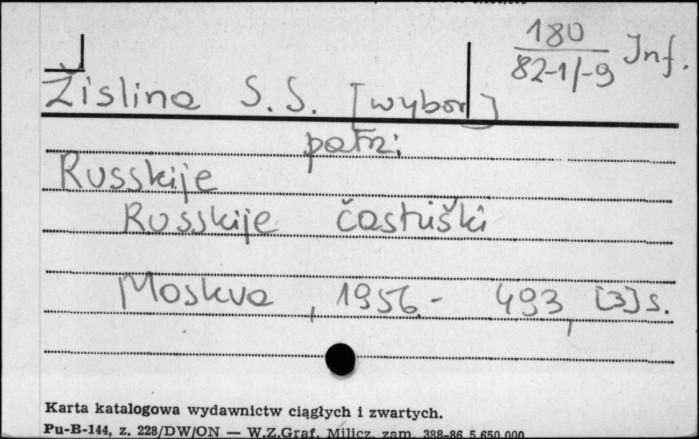 180 Inf.
82-1/-9
Žislina S. S. [wybor]
patrz:
Russkije
Russkije častuški
Moskva, 1956.- 493, [3] s.
Karta katalogowa wydawnictw ciągłych i zwartych.
Pu-B-144, z. 228/DW/ON — W.Z.Graf. Milicz, zam. 388-86 5.650.000